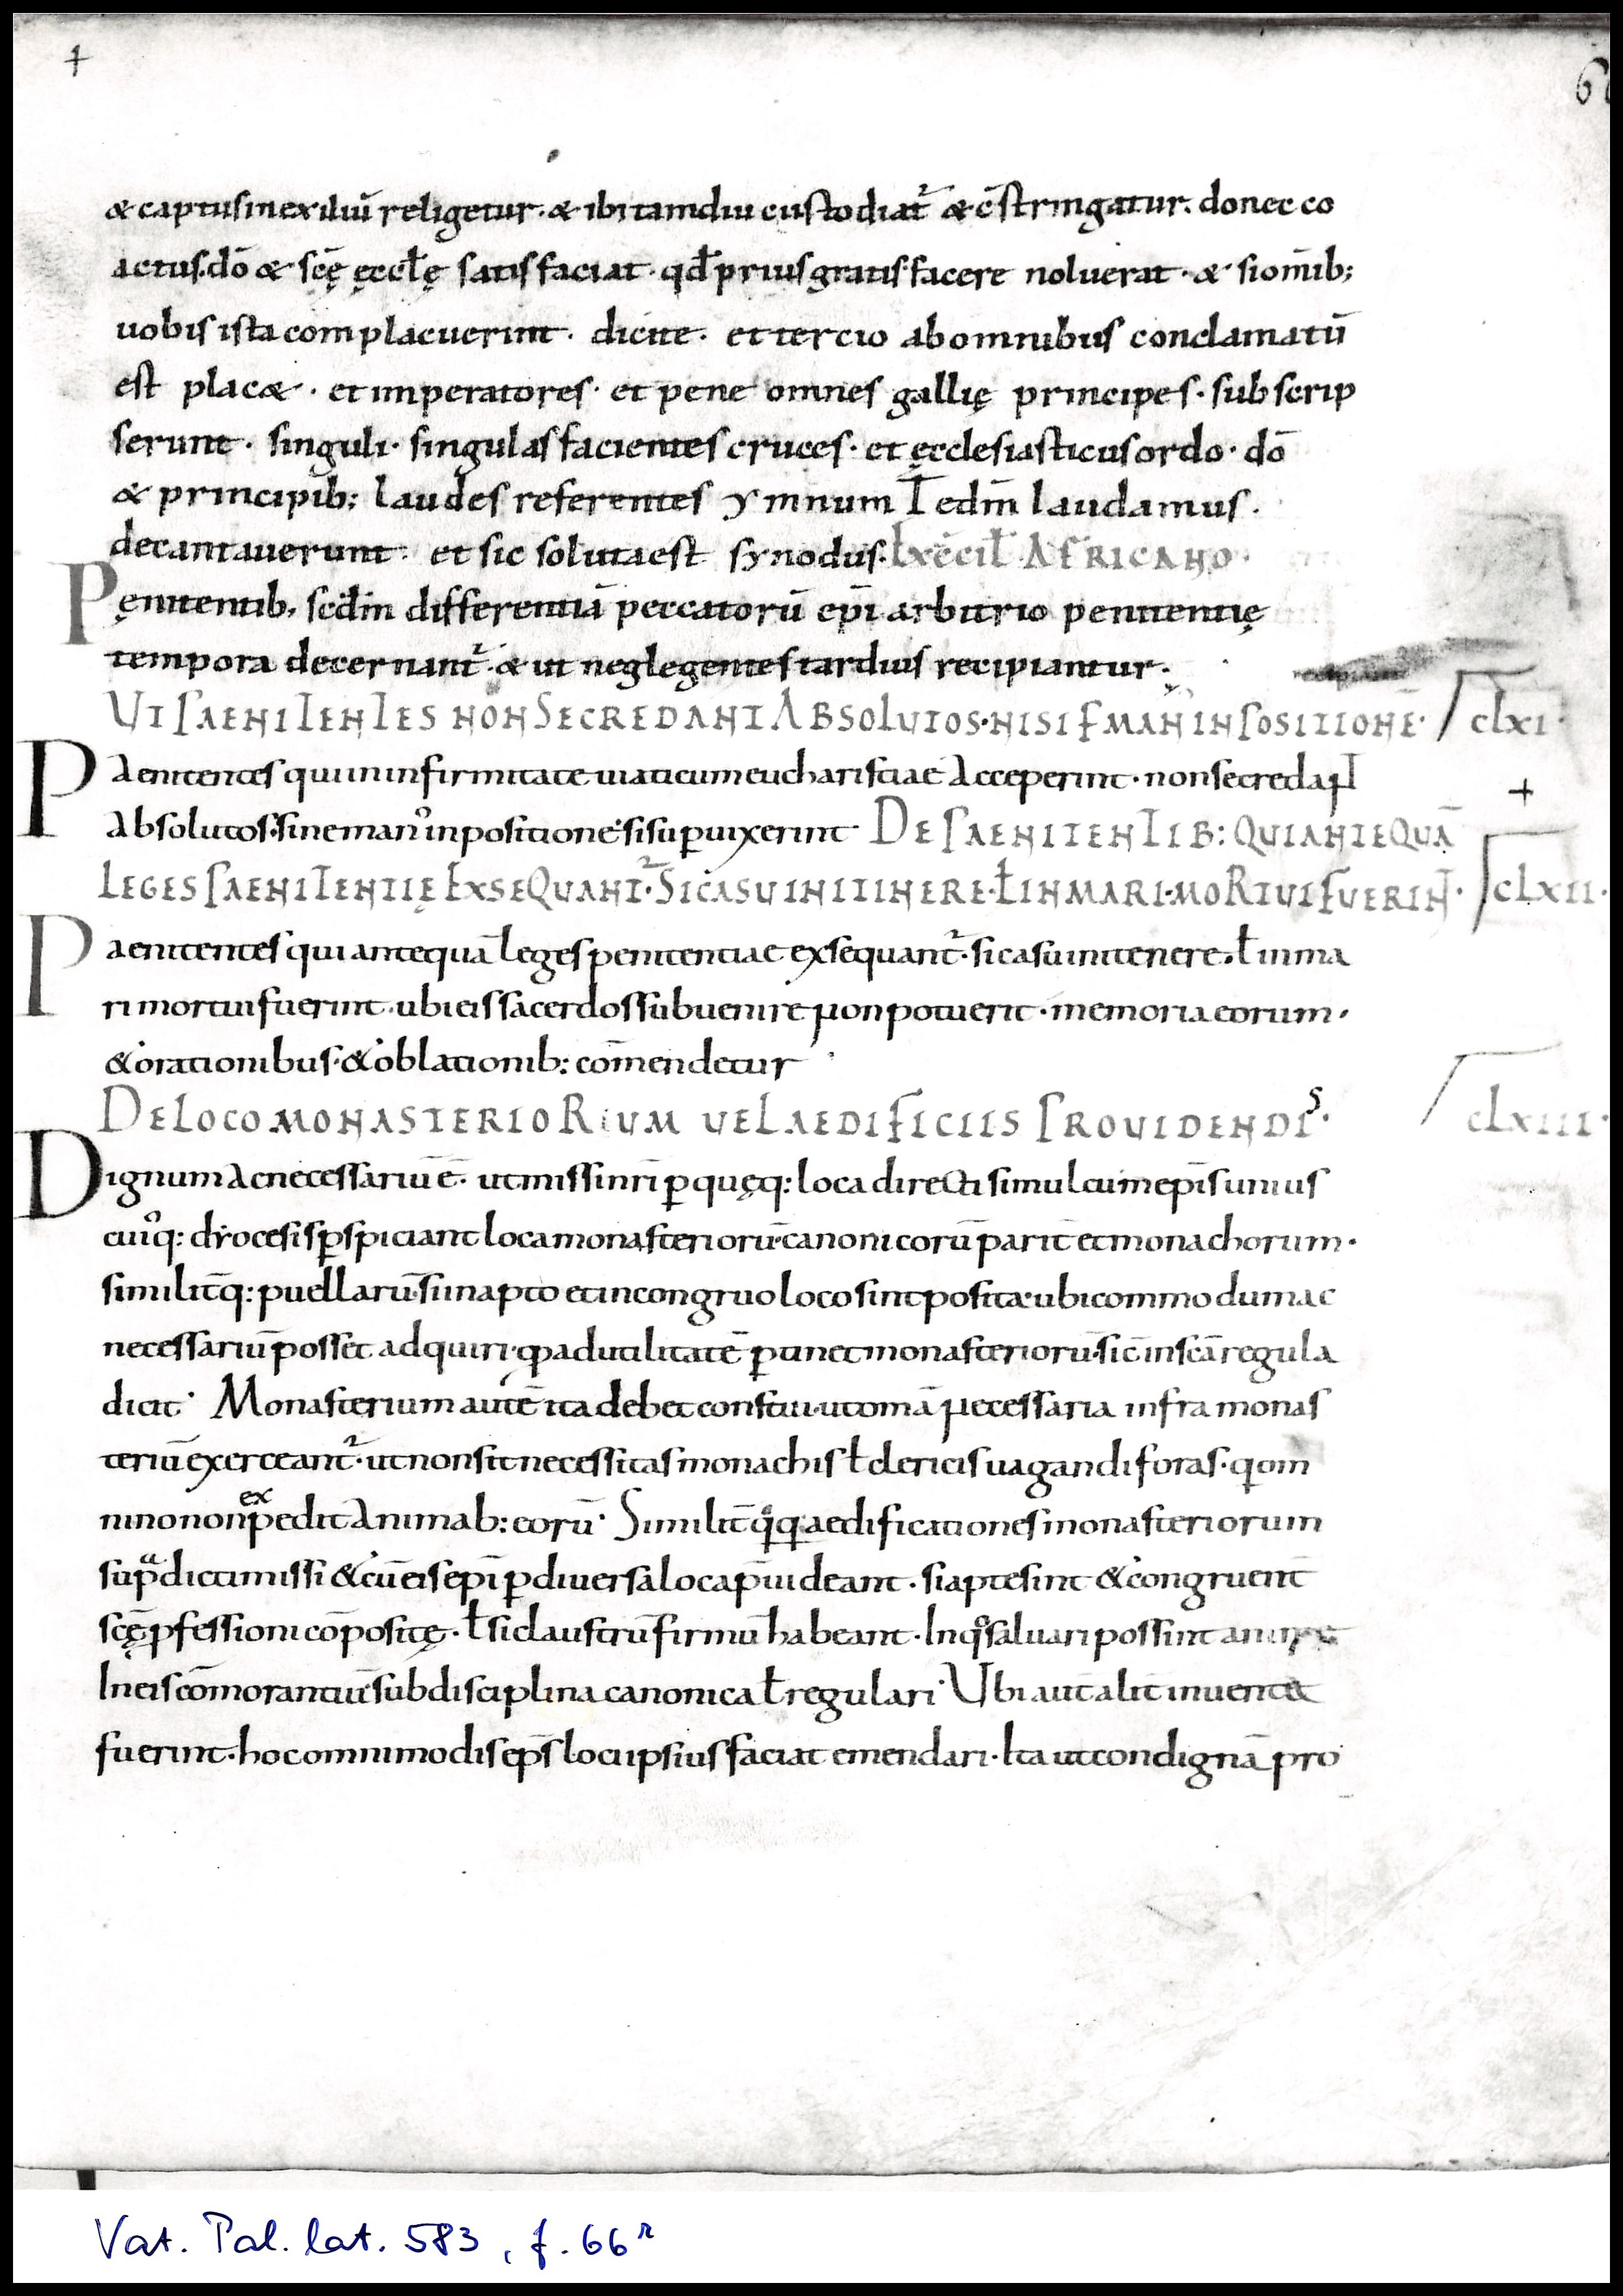 +
6
& captus in exiliū religetur · & ibi tamdiu custodiat᷑ & c̄stringatur · donec co
actus · dō & scę̄ ęccłę satisfaciat · qđ prius gratis facere noluerat · & si om̄ib;
uobis ista complacuerint · dicite · et tercio ab omnibus conclamatū
est plac& · et imperatores · et pene omnes gallię principes · subscrip
serunt · singuli · singulas facientes cruces · et ęcclesiasticus ordo · dō
& principib; laudes referentes ymnum Te dm̄ laudamus ·
decantauerunt · et sic soluta est synodus. Ex c̄cił AFRICANO ·
Pęnitentib; scd̄m differentiā peccatorū ep̄i arbitrio penitentię
tempora decernant᷑ · & ut neglegentes tardius recipiantur ·
UT PAENITENTES NON SE CREDANT ABSOLUTOS · NISI P MAN INPOSITIONĒ · clxi ·
Paenitentes qui in infirmitate uiaticum eucharistiae acceperint · non se credaNT
+
absolutos · sine man᾿ inpositione · si sup̱uixerint · DE PAENITENTIB: QUI ANTEQUĀ
LEGES PAENITENTIĘ EXSEQUANT᷑ · SI CASU IN ITINERE · Ł IN MARI · MORTUI FUERINT · clxii ·
Paenitentes qui antequā leges penitentiae exsequant᷑ · si casu in itenere · ł in ma
ri mortui fuerint · ubi eis sacerdos subuenire non potuerit · memoria eorum ·
& orationibus · & oblationib: com̄endetur
DE LOCO MONASTERIORUM UEL AEDIFICIIS PROUIDENDIS · clxiii ·
Dignum ac necessariū ē · ut missi nr̄i ꝑ quęq: loca directi simul cum ep̄is unius
cui᾿q: dyocesis ꝑspiciant loca monasteriorū · canonicorū parit̄ et monachorum ·
similit̄q: puellarū · si in apto et in congruo loco sint posita · ubi commodum ac
necessariū posset adquiri · qđ ad utilitatē ꝑtinet monasteriorū · sic̄ in scā regula
dicit · Monasterium autē ita debet constitui · ut omā necessaria infra monas
teriū exerceant᷑ · ut non sit necessitas monachis ł clericis uagandi foras · q om
nino non expedit animab: eorū · Similit̄ qqͦq aedificationes monasteriorum
supᵃdicti missi & cū eis ep̄i ꝑ diuersa loca ꝓuideant · si aptę sint & congruent̄
scę̄ ꝓfessioni cōpositę · ł si claustrū firmū habeant · In qͦ saluari possint animę
In eis cōmorantiū · sub disciplina canonica ł regulari · Ubi aut̄ alit̄ inuenta
fuerint · hoc omnimodis ep̄s loci ipsius faciat emendari · Ita ut condignā pro
Vat. Pal. lat. 583, f. 66ʳ